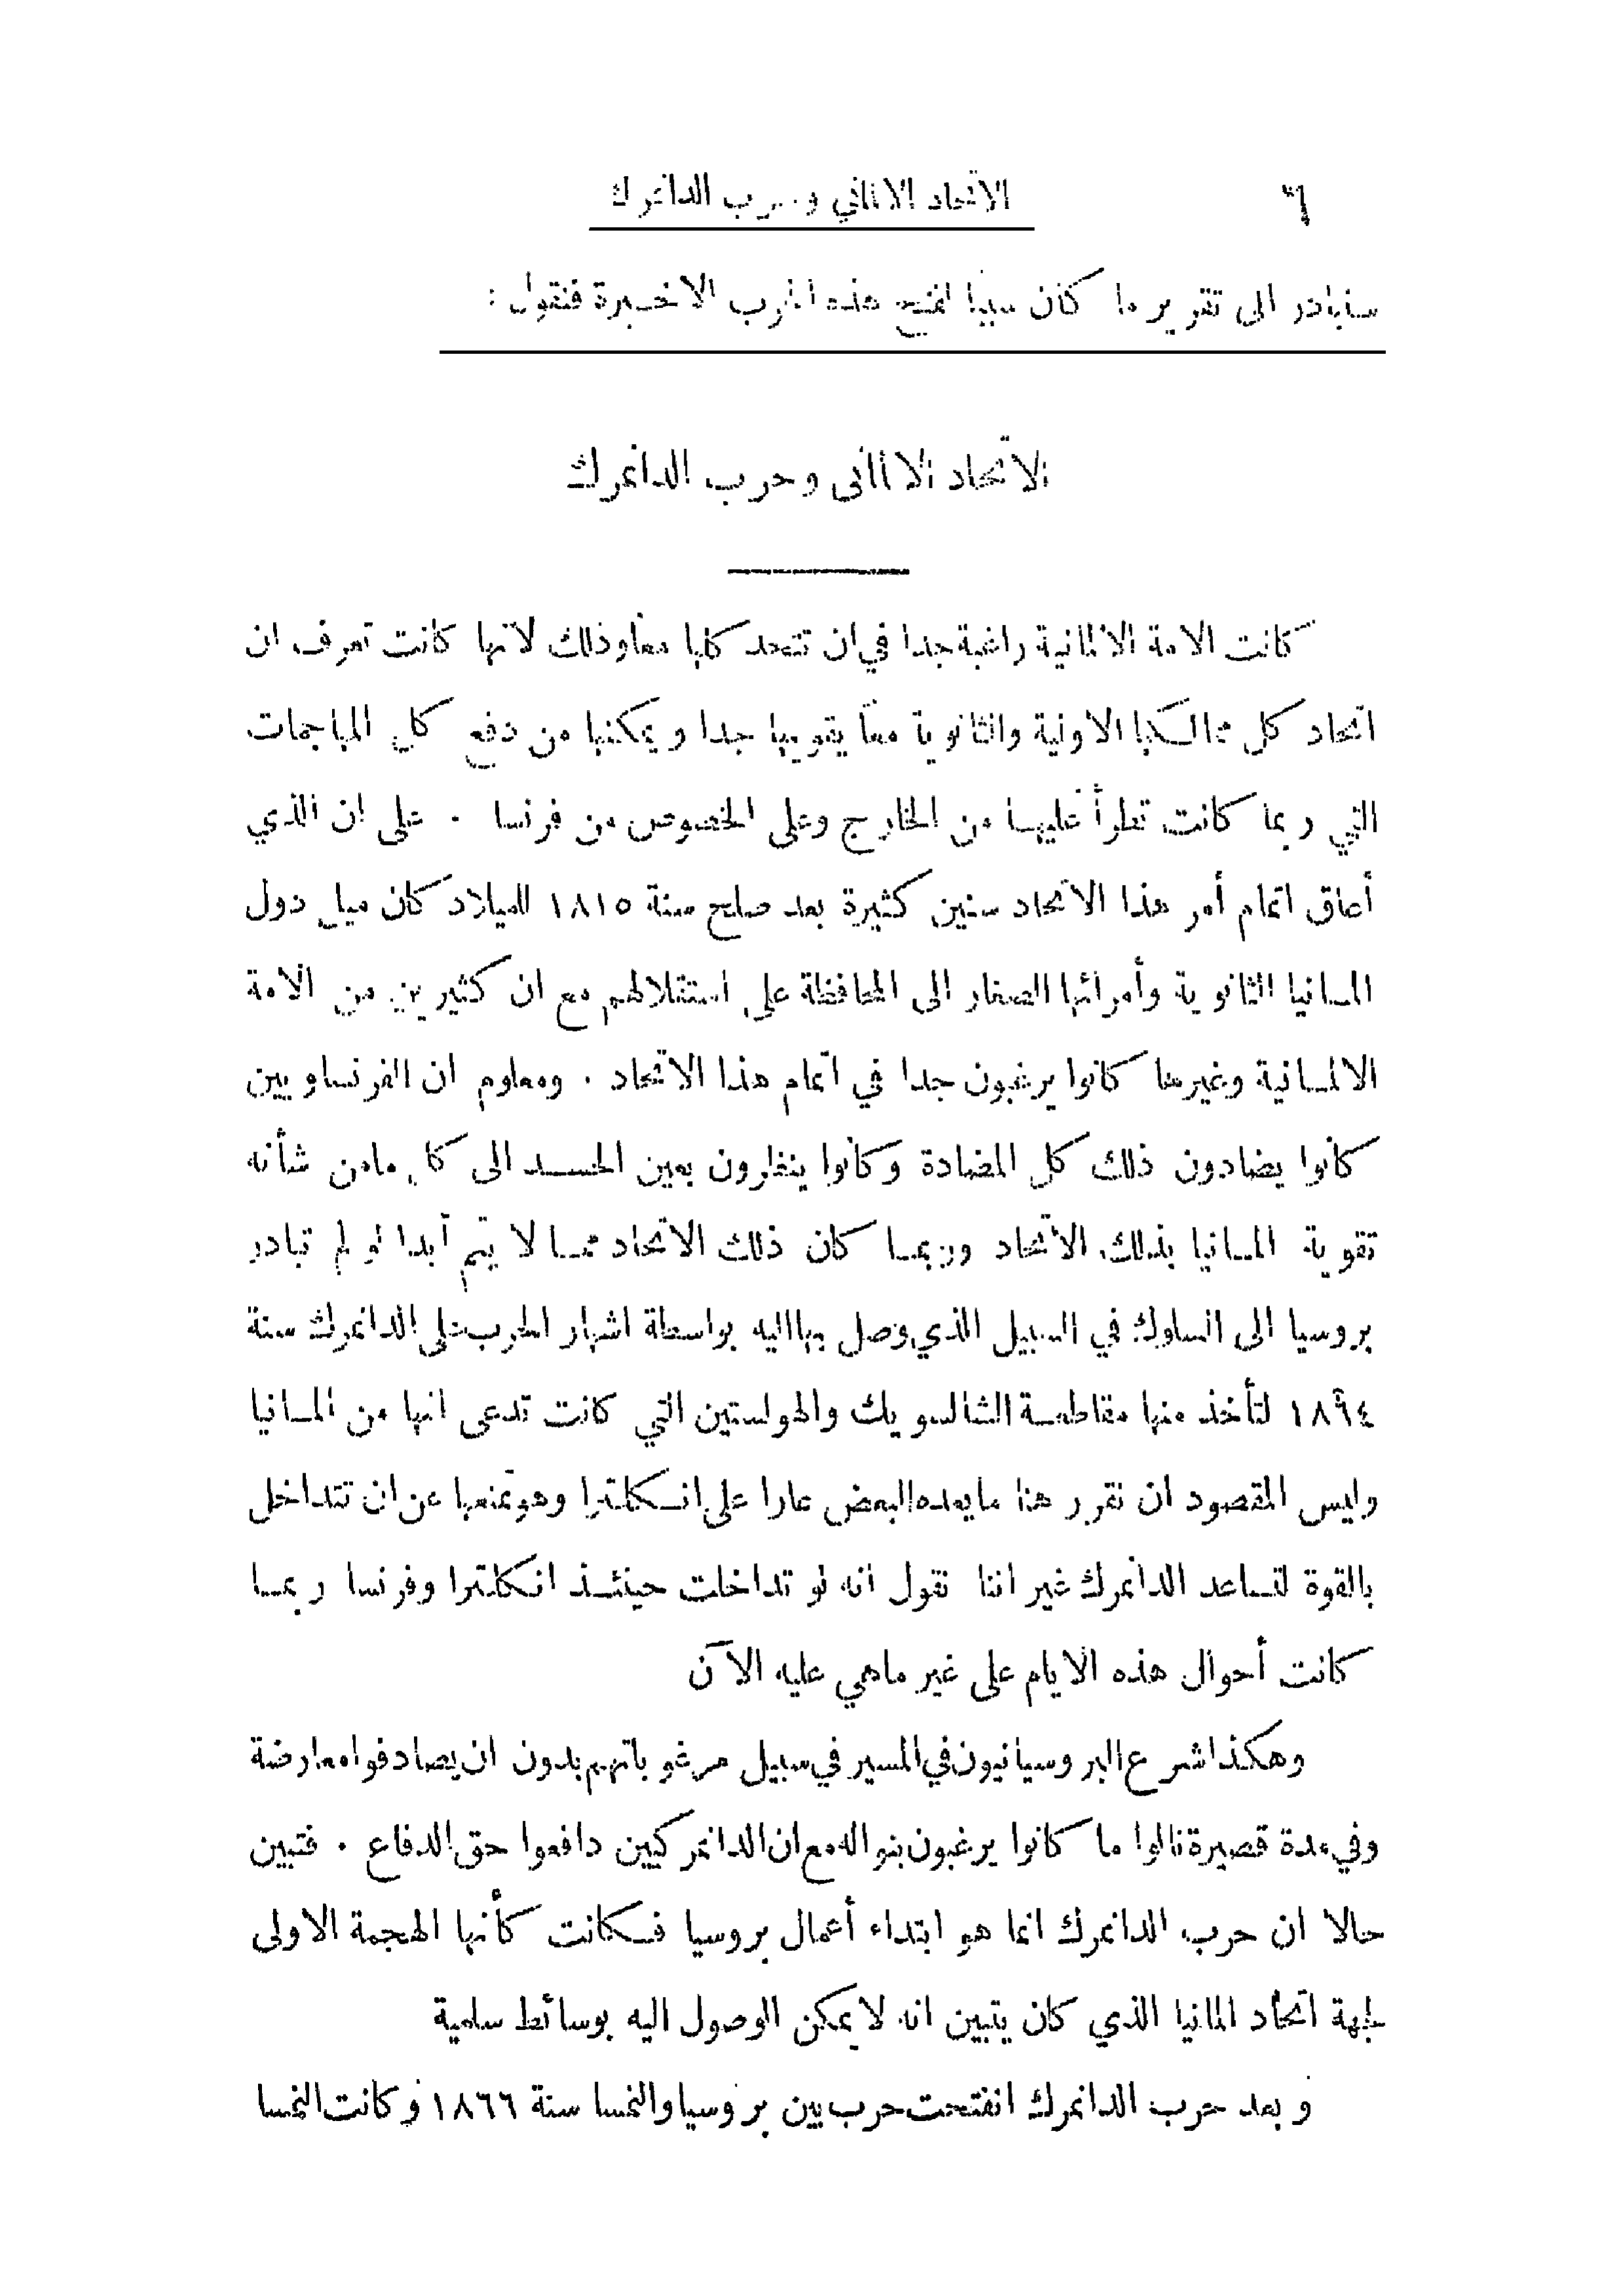 ٦ الاتحاد الالماني وحرب الدانمرك
سنبادر الى تقرير ما كان سببا لفتح هذه الحرب الاخـيرة فنقول :
الاتحاد الالمانى وحرب الدانمرك
كانت الامة الالمانية راغبة جدا في ان تتحد كلها معا وذلك لانها كانت تعرف ان
اتحاد كل ممالكها الاولية والثانوية معا يقويها جدا ويمكنها من دفع كل المهاجمات
التي ربما كانت تطرأ عليهـا من الخارج وعلى الخصوص من فرنسا . على ان الذي
أعاق اتمام أمر هذا الاتحاد سنين كثيرة بعد صلح سنة ١٨١٥ للميلاد كان ميل دول
المـانيا الثانوية وأمرائها الصغار الى المحافظة على استقلالهم مع ان كثيرين من الامة
الالمـانية وغيرها كانوا يرغبون جدا في اتمام هذا الاتحاد . ومعلوم ان الفرنساويين
كانوا يضادون ذلك كل المضادة وكانوا ينظرون بعين الحسـد الى كل مامن شأنه
تقوية المـانيا بذلك الاتحاد وربمـا كان ذلك الاتحاد ممـا لا يتم أبدا لو لم تبادر
بروسيا الى السلوك في السبيل الذي وصل بها اليه بواسطة اشهار الحرب على الدانمرك سنة
١٨٦٤ لتأخذ منها مقاطعـة الشالسويك والهولستين التي كانت تدعى انها من المـانيا
وليس المقصود ان نقرر هنا مايعده البعض عارا على انـكلترا وهو تمنعها عن ان تتداخل
بالقوة لتسـاعد الدانمرك غير اننا نقول انه لو تداخلت حينئـذ انكلترا وفرنسا ربمـا
كانت أحوال هذه الايام على غير ماهي عليه الآن
وهكذا شرع البروسيانيون في المسير في سبيل مرغوباتهم بدون ان يصادفوا معارضة
وفي مدة قصيرة نالوا ما كانوا يرغبون بنواله مع ان الدانمركيين دافعوا حق الدفاع . فتبين
حالا ان حرب الدانمرك انما هو ابتداء أعمال بروسيا فـكانت كأنها الهجمة الاولى
لجهة اتحاد المانيا الذي كان يتبين انه لا يمكن الوصول اليه بوسائط سلمية
وبعد حرب الدانمرك انفتحت حرب بين بروسيا والنمسا سنة ١٨٦٦ وكانت النمسا